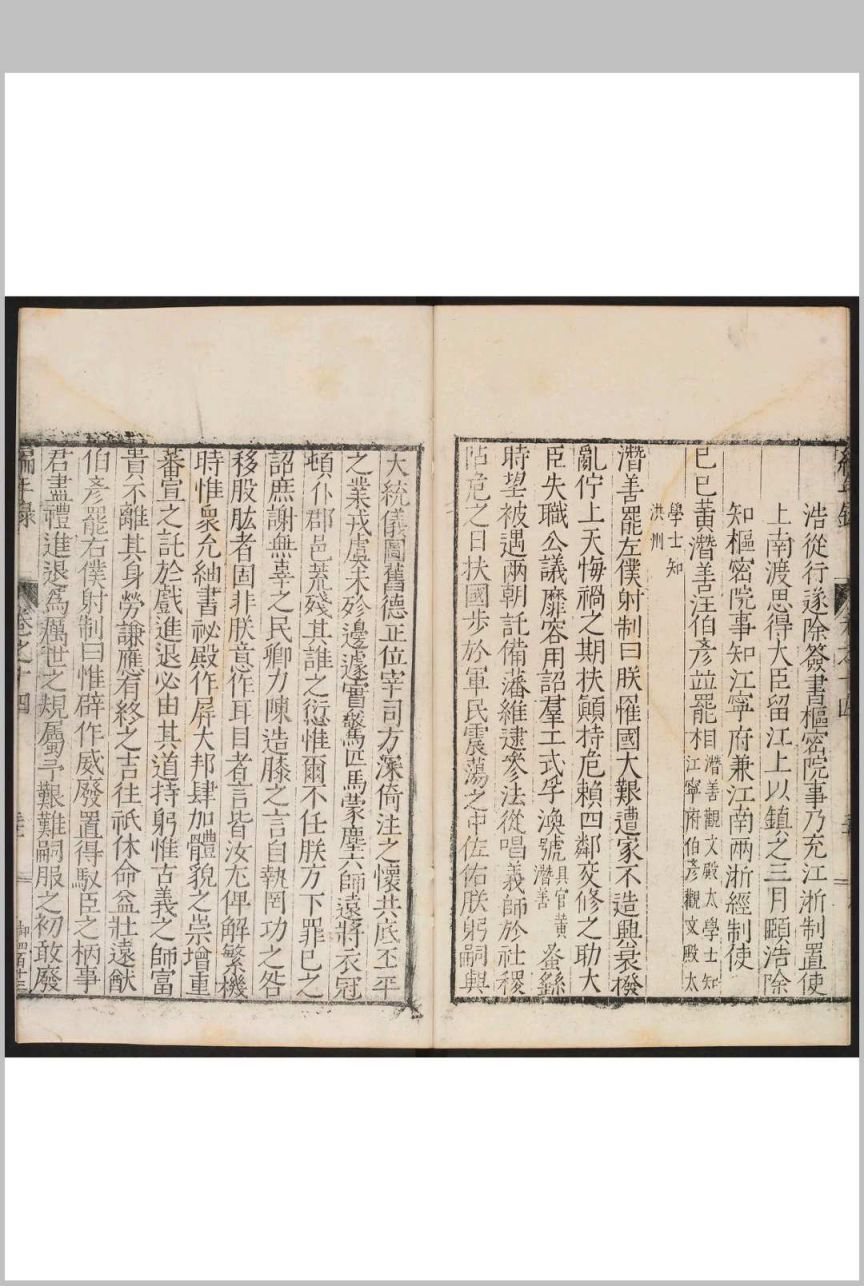 浩從行遂除簽書樞密院事乃充江浙制置使
上南渡思得大臣留江上以鎮之三月頤浩除
知樞密院事知江寧府兼江南兩浙經制使
己巳黃潛善汪伯彥並罷相潛善觀文殿大學士知江寧府伯彥觀文殿大
學士知洪州
潛善罷左僕射制曰朕罹國大艱遭家不造興衰撥
亂佇上天悔禍之期扶顛持危賴四鄰交修之助大
臣失職公議靡容用詔羣工式孚渙號具官黃潛善蚤繇
時望被遇兩朝託備藩維逮參法從唱義師於社稷
阽危之日扶國步於軍民震蕩之中佐佑朕躬嗣興
大統儀圖舊德正位宰司方深倚注之懷共底丕平
之業戎虜未殄邊遽實驚匹馬蒙塵六師遠將衣冠
頓仆郡邑荒殘其誰之愆惟爾不任朕方下罪己之
詔庶謝無辜之民卿力陳造膝之言自執罔功之咎
移股肱者固非朕意作耳目者言皆汝尤俾解繁機
時惟衆允紬書祕殿作屏大邦肆加體貌之崇增重
蕃宣之託於戲進退必由其道持躬惟古義之師富
貴不離其身勞謙應有終之吉往祇休命益壯遠猷
伯彥罷右僕射制曰惟辟作威廢置得馭臣之柄事
君盡禮進退為厲世之規屬予艱難嗣服之初敢廢
編年錄
卷之十四